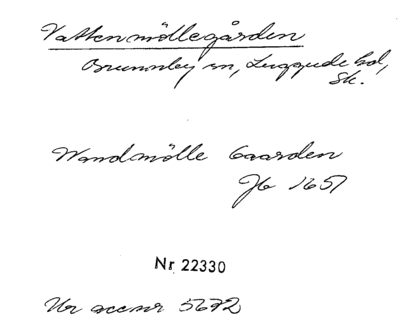 Vattenmöllegården
Brunnby sn, Luggude hd,
Sk.
Wandmølle Gaarden
Jb 1651
Nr 22330
Ur accnr 5672